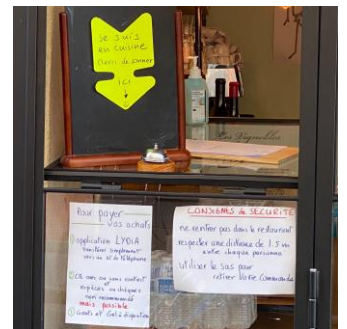 Je suis
en cuisine
merci de sonner
ICI
Les Vignobles
Pour payer
vos achats
① application LYDIA
transfert simplement
vers un N° de téléphone
② CB avec ou sans contact
et
espèces ou chèques
non recommandé
mais possible
③ Gants et Gel à disposition
CONSIGNES de SECURITE
ne rentrer pas dans le restaurant
respecter une distance de 1.5 m
entre chaque personne
utiliser le sas pour
retirer Votre Commande